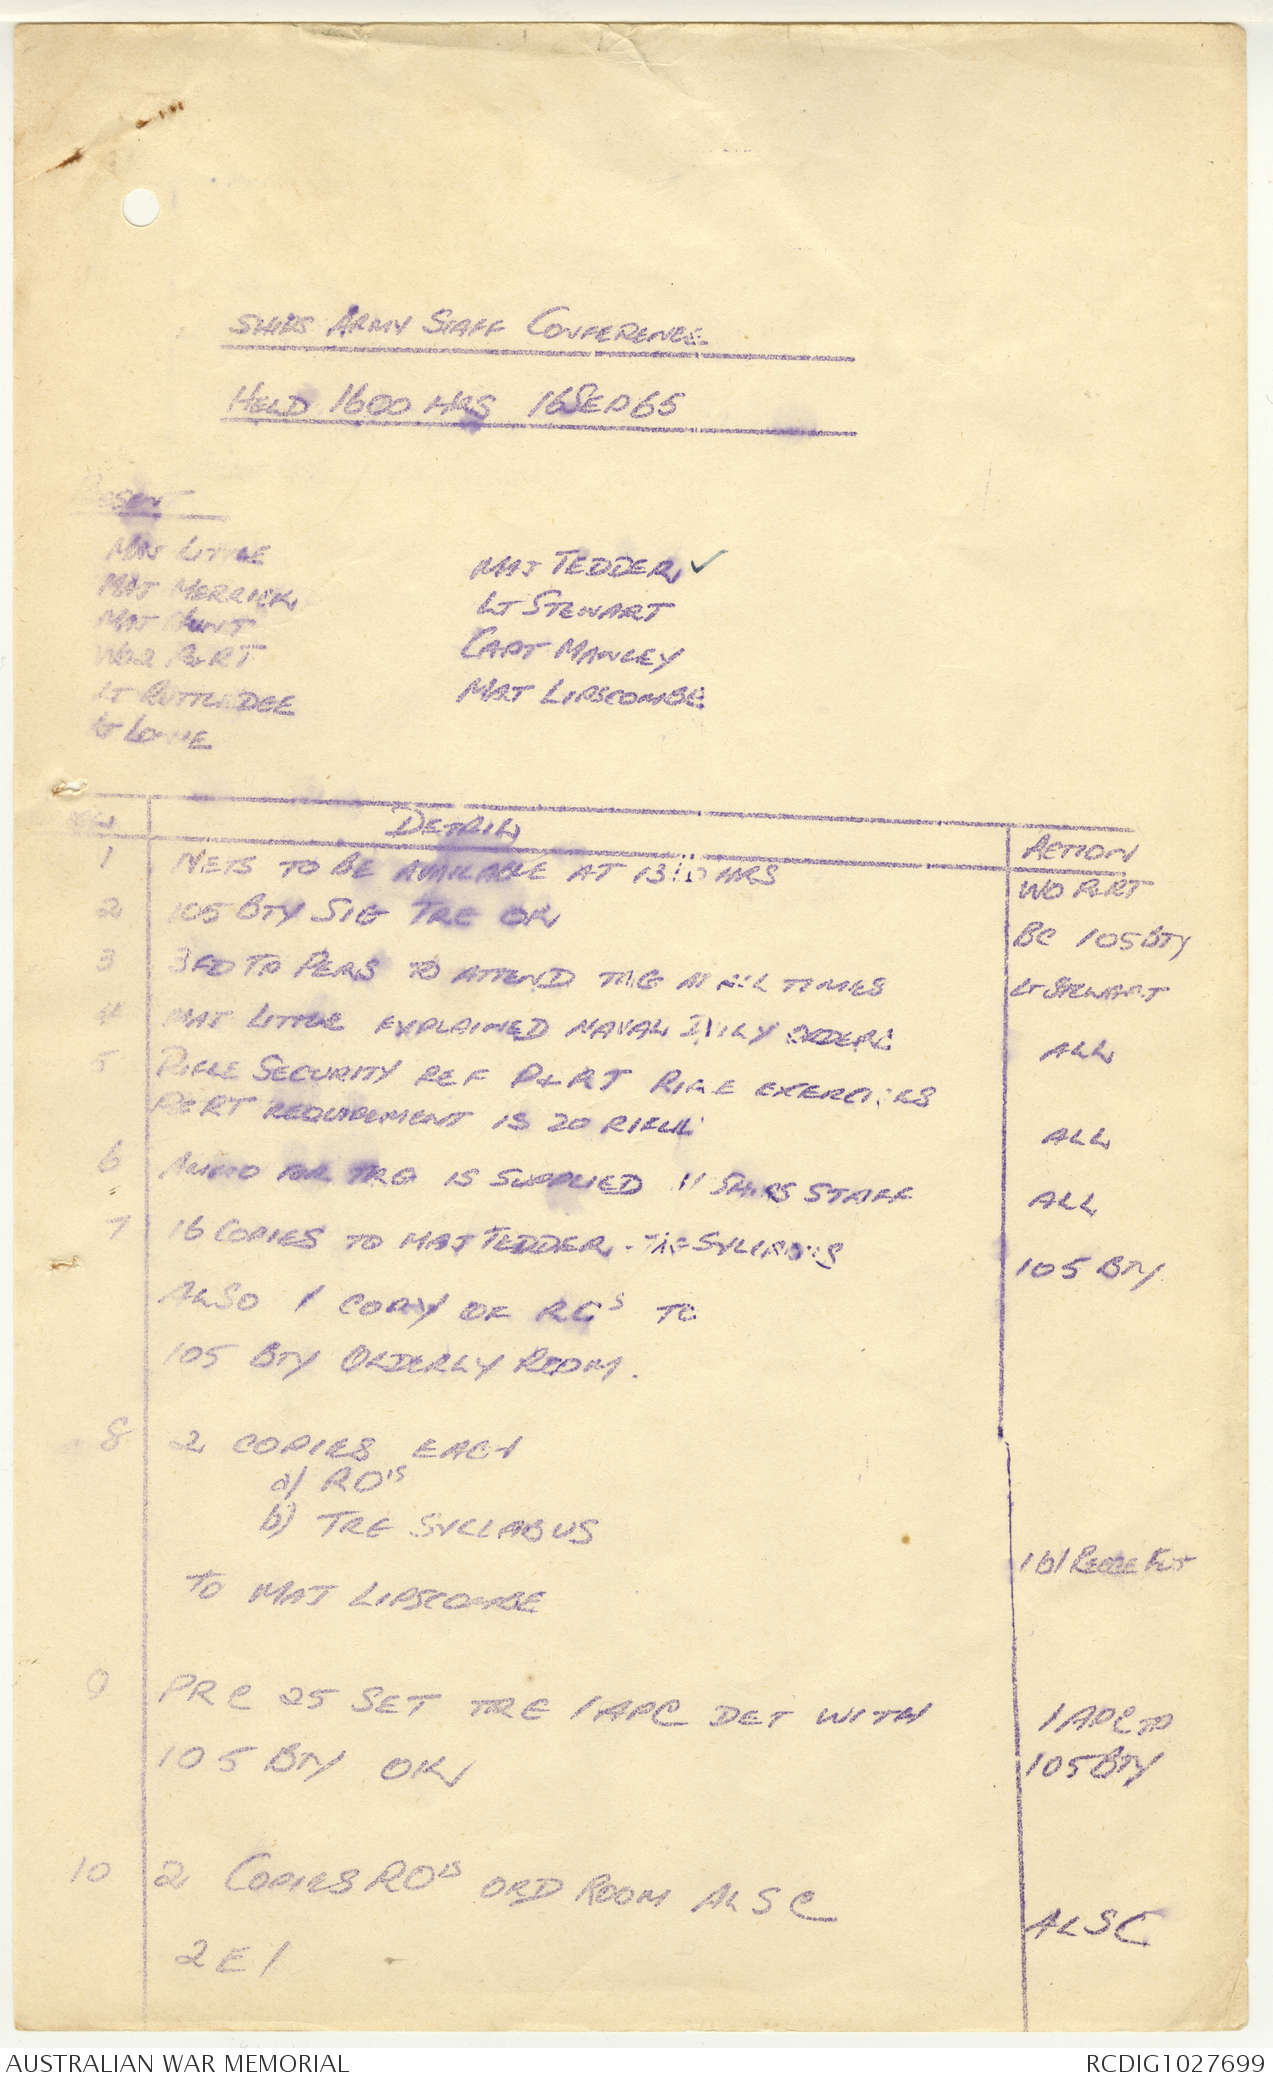 SHIPS ARMY STAFF CONFERENCE
HELD 1600 HRS 16 SEP 65
PRESENT
MAJ LITTLE
MAJ MERRICK
MAJ HUNT
WO2 P&RT
LT RUTTLEDGE
LT
MAJ TEDDER ✓
LT STEWART
CAPT MANLEY
MAJ LIPSCOMBE
DETAIL
ACTION
1 NETS TO BE AVAILABLE AT HRS WO P&RT
2 105 BTY SIG TRG OK BC 105 BTY
3 3 FD TP PERS TO ATTEND TRG AT TIMES LT STEWART
4 MAJ LITTLE EXPLAINED NAVAL DAILY ORDERS ALL
5 RIFLE SECURITY REF P&RT RIFLE EXERCISES
P&RT REQUIREMENT IS 20 RIFLES ALL
6 AMMO FOR TRG IS SUPPLIED SHIPS STAFF ALL
7 16 COPIES TO MAJ TEDDER - SYLLABUS 105 BTY
ALSO 1 COPY OF RO'S TO
105 BTY ORDERLY ROOM.
8 2 COPIES EACH
a) RO'S
b) TRG SYLLABUS
TO MAJ LIPSCOMBE
161 RECCE FLT
9 PRC 25 SET TRG 1 APC DET WITH 1 APC TP
105 BTY OK 105 BTY
10 2 COPIES RO'S ORD ROOM ALSC ALSC
2 E 1
AUSTRALIAN WAR MEMORIAL
RCDIG1027699